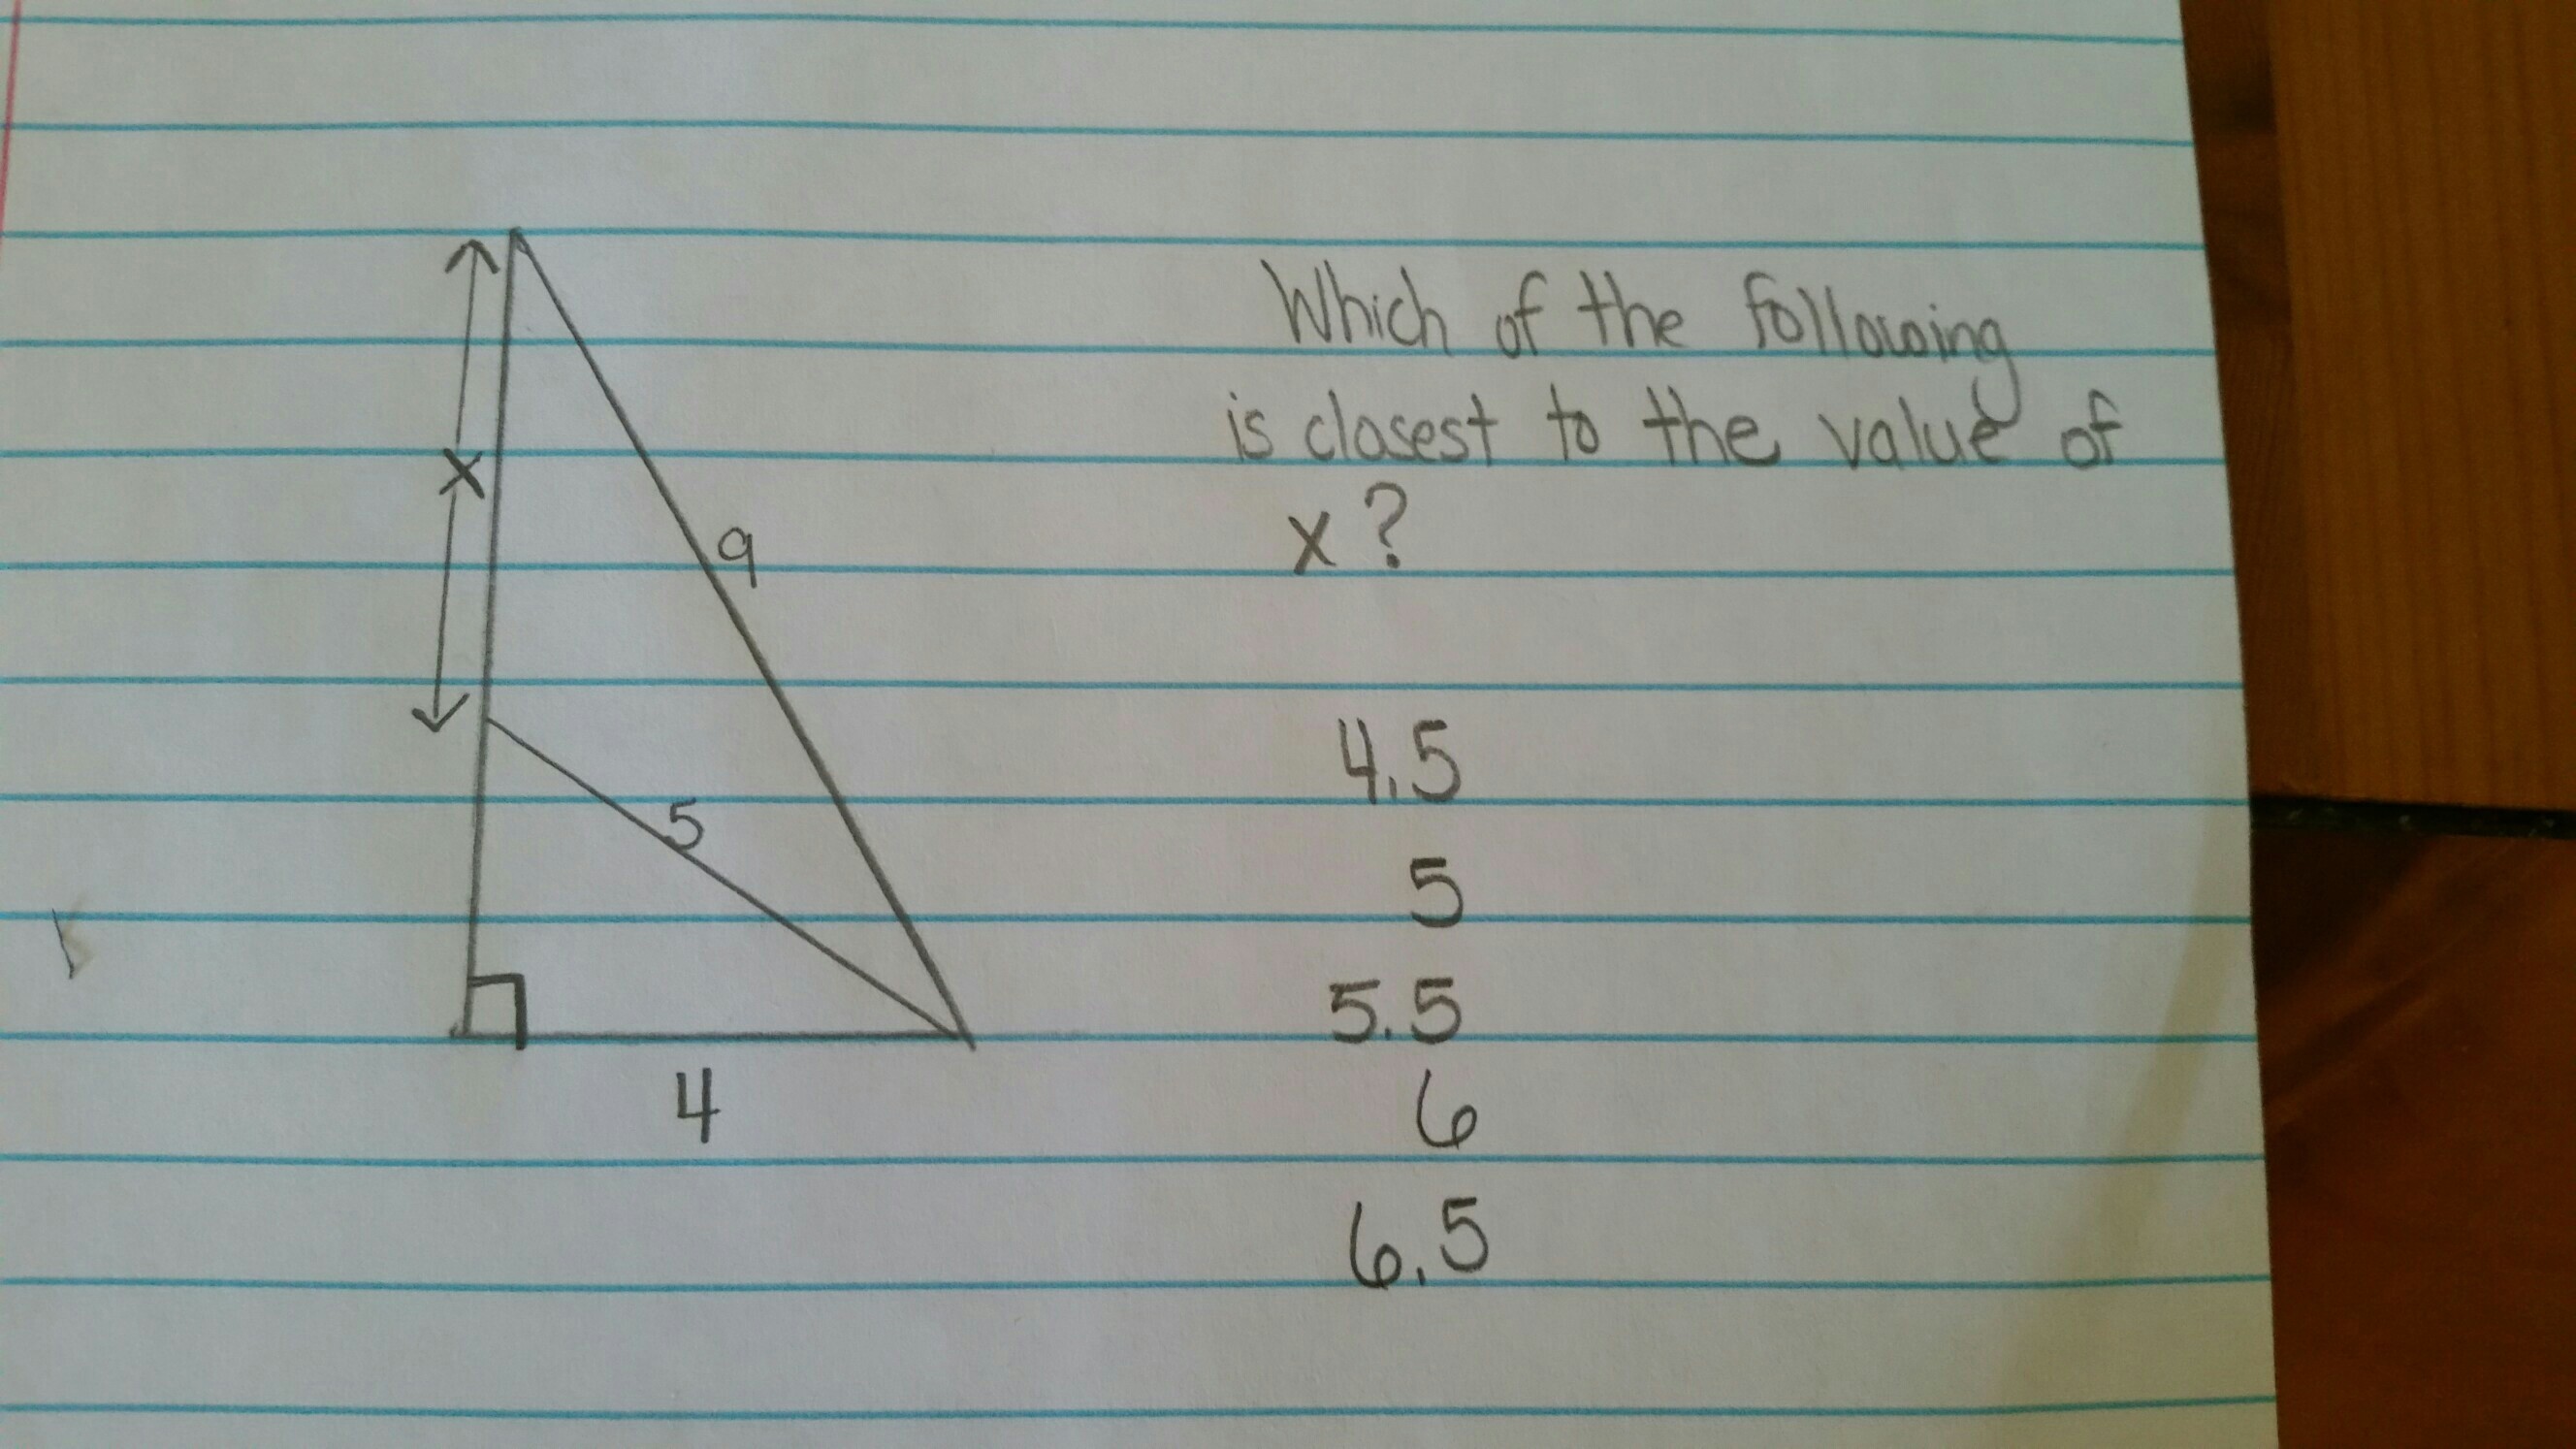 Which of the following
is closest to the value of
x?
x
9
5
4
4.5
5
5.5
6
6.5